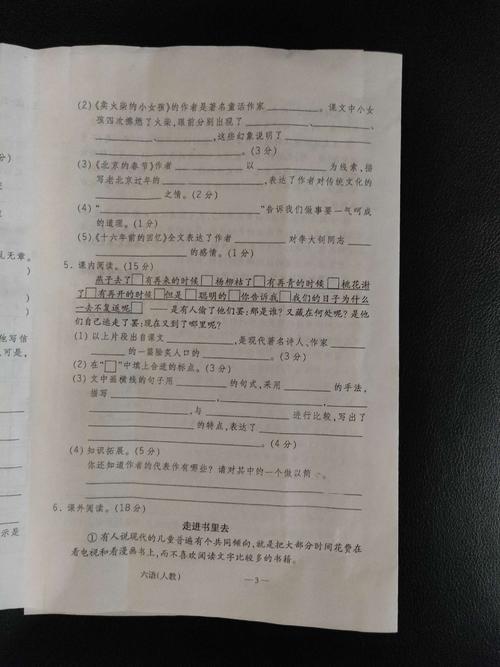 (2)《卖火柴的小女孩》的作者是著名童话作家__________。课文中小女
孩四次擦燃了火柴,眼前分别出现了__________、__________、
__________、__________,这些幻象说明了__________
__________。(3分)
(3)《北京的春节》作者__________以__________为线索,描
写老北京过年的__________,表达了作者对传统文化的
__________之情。(2分)
(4)“__________”告诉我们做事要一气呵成
的道理。(1分)
(5)《十六年前的回忆》全文表达了作者__________对李大钊同志__________
__________的感情。(1分)
5. 课内阅读。(15分)
燕子去了□有再来的时候□杨柳枯了□有再青的时候□桃花谢
了□有再开的时候□但是□聪明的□你告诉我□我们的日子为什么
一去不复返呢□——是有人偷了他们罢:那是谁?又藏在何处呢?是他
们自己逃走了罢:现在又到了哪里呢?
(1)以上片段出自课文__________,是现代著名诗人、作家__________
__________的一篇脍炙人口的__________。(3分)
(2)在“□”中填上合适的标点。(3分)
(3)文中画横线的句子用__________的句式,采用__________的手法,
描写__________,__________
__________,与__________进行比较,写出了
__________的特点,表达了__________
__________。(4分)
(4)知识拓展。(5分)
你还知道作者的代表作有哪些?请对其中的一个做以简
6. 课外阅读。(18分)
走进书里去
①有人说现代的儿童普遍有个共同倾向,就是把大部分时间花费在
看电视和看漫画书上,而不喜欢阅读文字比较多的书籍。
六语(人教)
—3—
分)
无章。
)
)
他写信
可是,
示是